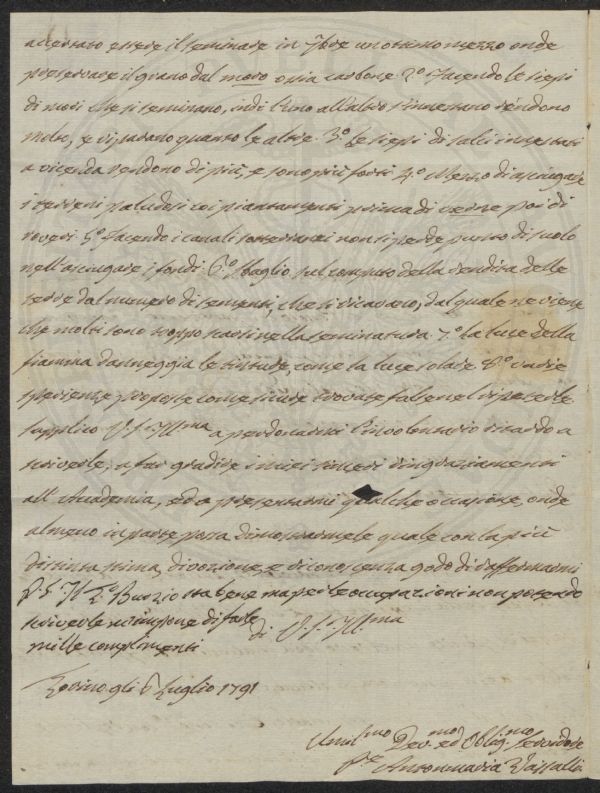 accertato essere il seminare in 7bre un ottimo mezzo onde
preservare il grano dal moro ossia carbone 2.° facendo le siepi
di mori che si seminano, indi l'uno all'altro s'innestano rendono
molto, e riparano quanto le altre. 3.° le siepi di salci innestati
a vicenda rendono di più, e sono più forti 4.° Mezzo di asciugare
i terreni paludosi coi piantamenti prima di verne poi di
roveri 5.° facendo i canali sotterranei non si perde punto di suolo
nell'asciugare i fondi 6.° Sbaglio sul computo della rendita delle
terre dal numero di sementi, che si ricavano, dal quale ne viene
che molti sono troppo scarsi nella seminatura 7.° La luce della
fiamma danneggia le tinture, come la luce solare 8.° varie
sperienze proposte come sicure trovate false nel ripeterle
supplico V. S. Ill.ma a perdonarmi l'involontario ritardo a
scriverle, a far gradire i miei sinceri ringraziamenti
all'Accademia, ed a presentarmi qualche occasione, onde
almeno in parte possa dimostrarmele quale con la più
distinta stima, divozione, e riconoscenza godo di raffermarmi
P. S. Il Buzio sta bene ma per le occupazioni non potendo
scriverle m'impone di farle
mille complimenti
di V. S. Ill.ma
Torino gli 6 Luglio 1791
Umil.mo Dev.mo ed Oblig.mo Servidore
Antonmaria Vassalli